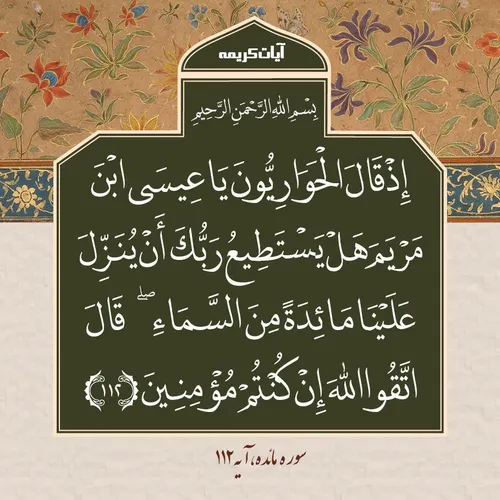 آیات کریمه
بِسْمِ اللهِ الرَّحْمَنِ الرَّحِيمِ
إِذْ قَالَ الْحَوَارِيُّونَ يَا عِيسَى ابْنَ
مَرْيَمَ هَلْ يَسْتَطِيعُ رَبُّكَ أَنْ يُنَزِّلَ
عَلَيْنَا مَائِدَةً مِنَ السَّمَاءِ ۖ قَالَ
اتَّقُوا اللهَ إِنْ كُنْتُمْ مُؤْمِنِينَ ﴿۱۱۲﴾
سوره مائده، آیه ۱۱۲